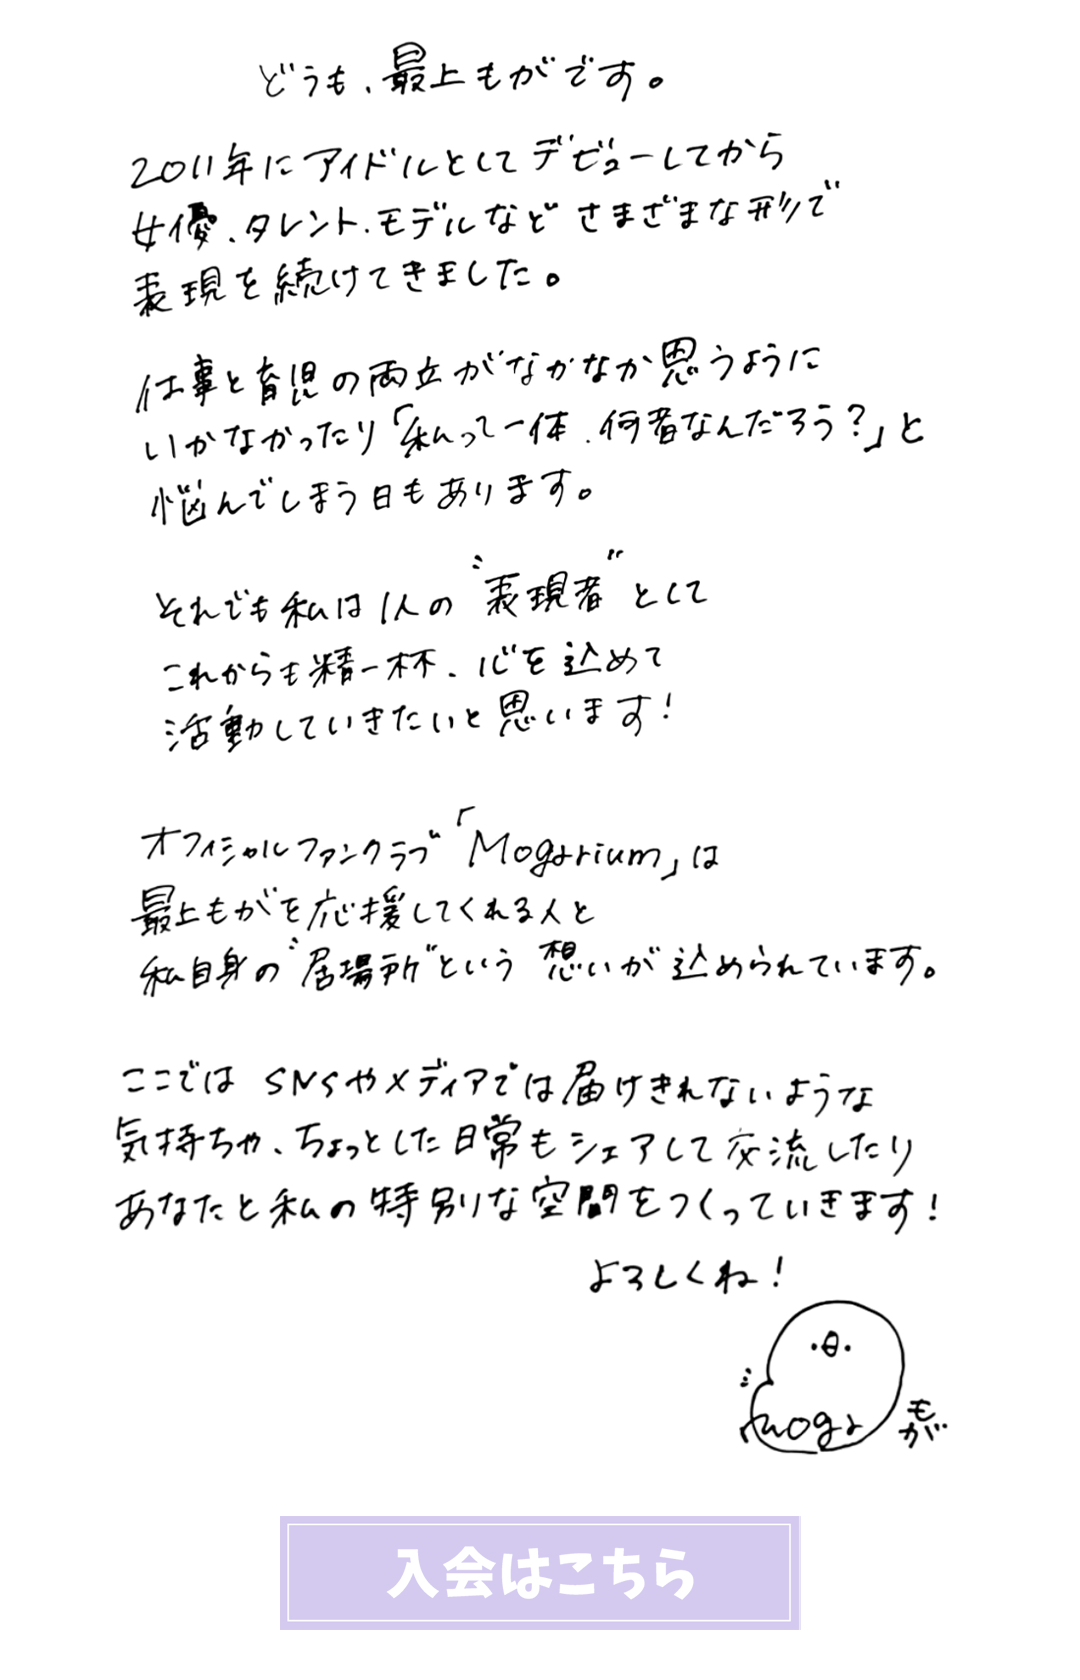 どうも、最上もがです。
2011年にアイドルとしてデビューしてから
女優、タレント、モデルなど さまざまな形で
表現を続けてきました。
仕事と育児の両立がなかなか思うように
いかなかったり「私って一体、何者なんだろう?」と
悩んでしまう日もあります。
それでも私は1人の〝表現者〟として
これからも精一杯、心を込めて
活動していきたいと思います!
オフィシャルファンクラブ「Mogarium」は
最上もがを応援してくれる人と
私自身の〝居場所〟という 想いが込められています。
ここでは SNSやメディアでは届けきれないような
気持ちや、ちょっとした日常もシェアして交流したり
あなたと私の特別な空間をつくっていきます!
よろしくね!
moga
もが
入会はこちら